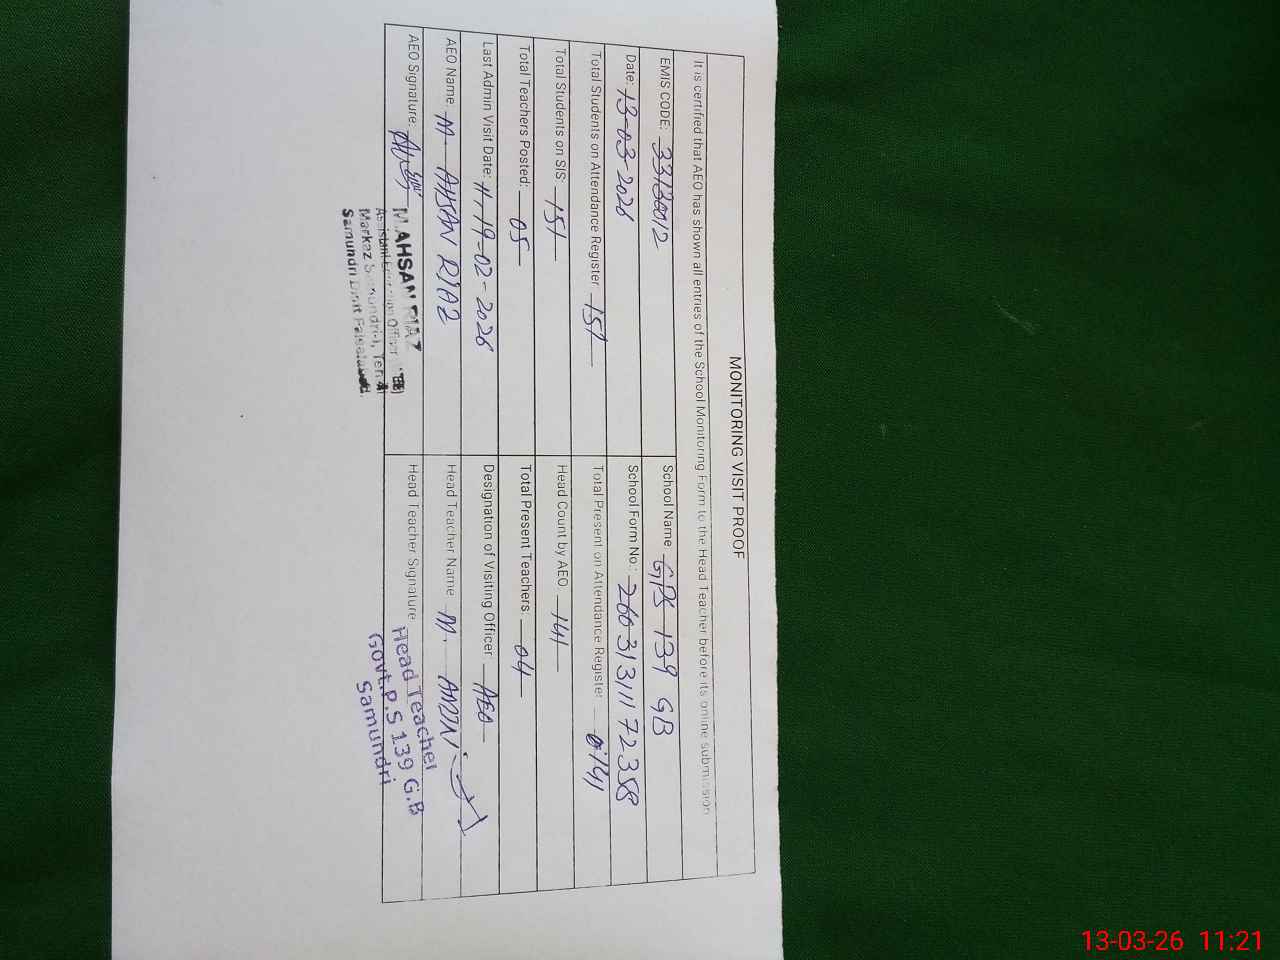 MONITORING VISIT PROOF
It is certified that AEO has shown all entries of the School Monitoring Form to the Head Teacher before its online submission
EMIS CODE: 33130012 School Name GPS 139 GB
Date: 13-03-2026 School Form No.: 26031311172358
Total Students on Attendance Register 151 Total Present on Attendance Register 141
Total Students on SIS: 151 Head Count by AEO 141
Total Teachers Posted: 05 Total Present Teachers: 04
Last Admin Visit Date: 19-02-2026 Designation of Visiting Officer: AEO
AEO Name M. AHSAN RIAZ Head Teacher Name M.
AEO Signature: Head Teacher Signature
M. AHSAN RIAZ
Assistant Education Officer
Markaz Samundri-I, Teh
Samundri Distt Faisalabad.
Head Teacher
Govt.P.S 139 G.B
Samundri
13-03-26 11:21